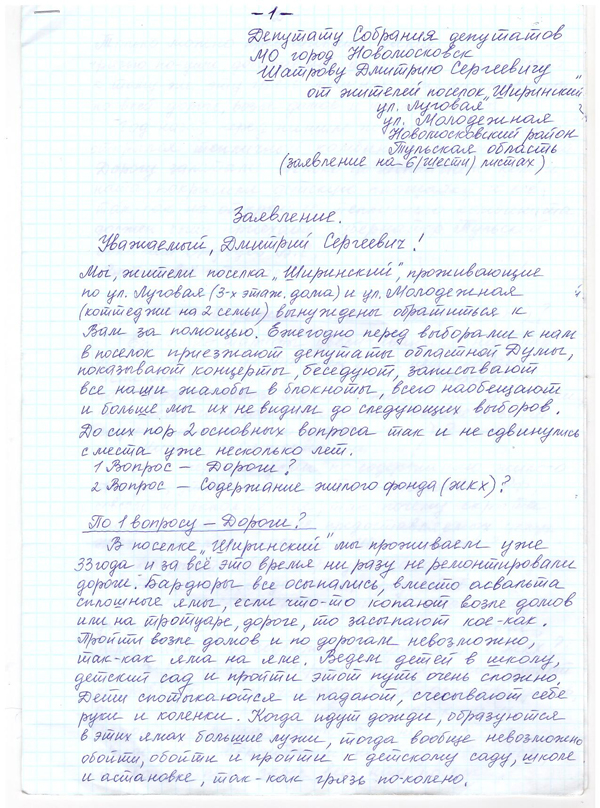 -1-
Депутату Собрания депутатов
МО город Новомосковск
Шатрову Дмитрию Сергеевичу
от жителей поселок „Ширинский"
ул. Луговая
ул. Молодежная
Новомосковский район
Тульская область
(заявление на 6(шести) листах)
Заявление.
Уважаемый, Дмитрий Сергеевич!
Мы, жители поселка „Ширинский", проживающие
по ул. Луговая (3-х этаж. дома) и ул. Молодежная
(коттеджи на 2 семьи) вынуждены обратиться к
Вам за помощью. Ежегодно перед выборами к нам
в поселок приезжают депутаты областной Думы,
показывают концерты, беседуют, записывают
все наши жалобы в блокноты, всего наобещают
и больше мы их не видим до следующих выборов.
До сих пор 2 основных вопроса так и не сдвинулись
с места уже несколько лет.
1 Вопрос – Дороги?
2 Вопрос – Содержание жилого фонда (ЖКХ)?
По 1 вопросу – Дороги?
В поселке „Ширинский" мы проживаем уже
33 года и за всё это время ни разу не ремонтировали
дороги. Бардюры все осыпались, вместо асвальта
сплошные ямы, если что-то копают возле домов
или на тротуаре, дороге, то засыпают кое-как.
Пройти возле домов и по дорогам невозможно,
так-как яма на яме. Ведем детей в школу,
детский сад и пройти этот путь очень сложно.
Дети спотыкаются и падают, счесывают себе
руки и коленки. Когда идут дожди, образуются
в этих ямах большие лужи, тогда вообще невозможно
обойти, обойти и пройти к детскому саду, школе
и астановке, так-как грязь по-колено.